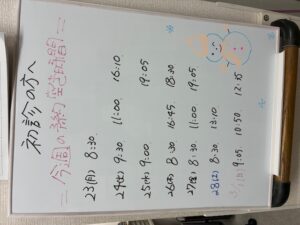 初診の方へ
＝今週の予約空き時間＝
23(月) 8:30
24(火) 9:30 11:00 16:10
25(水) 9:00 19:05
26(木) 8:30 16:45 18:30
27(金) 8:30 11:00 19:05
28(土) 8:30 13:10
3/1(日) 9:05 10:50 12:35